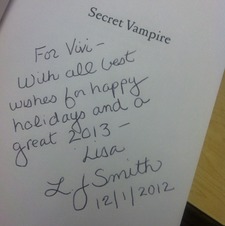 Secret Vampire
For Vivi -
With all best
wishes for happy
holidays and a
great 2013 -
Lisa
L J Smith
12/1/2012